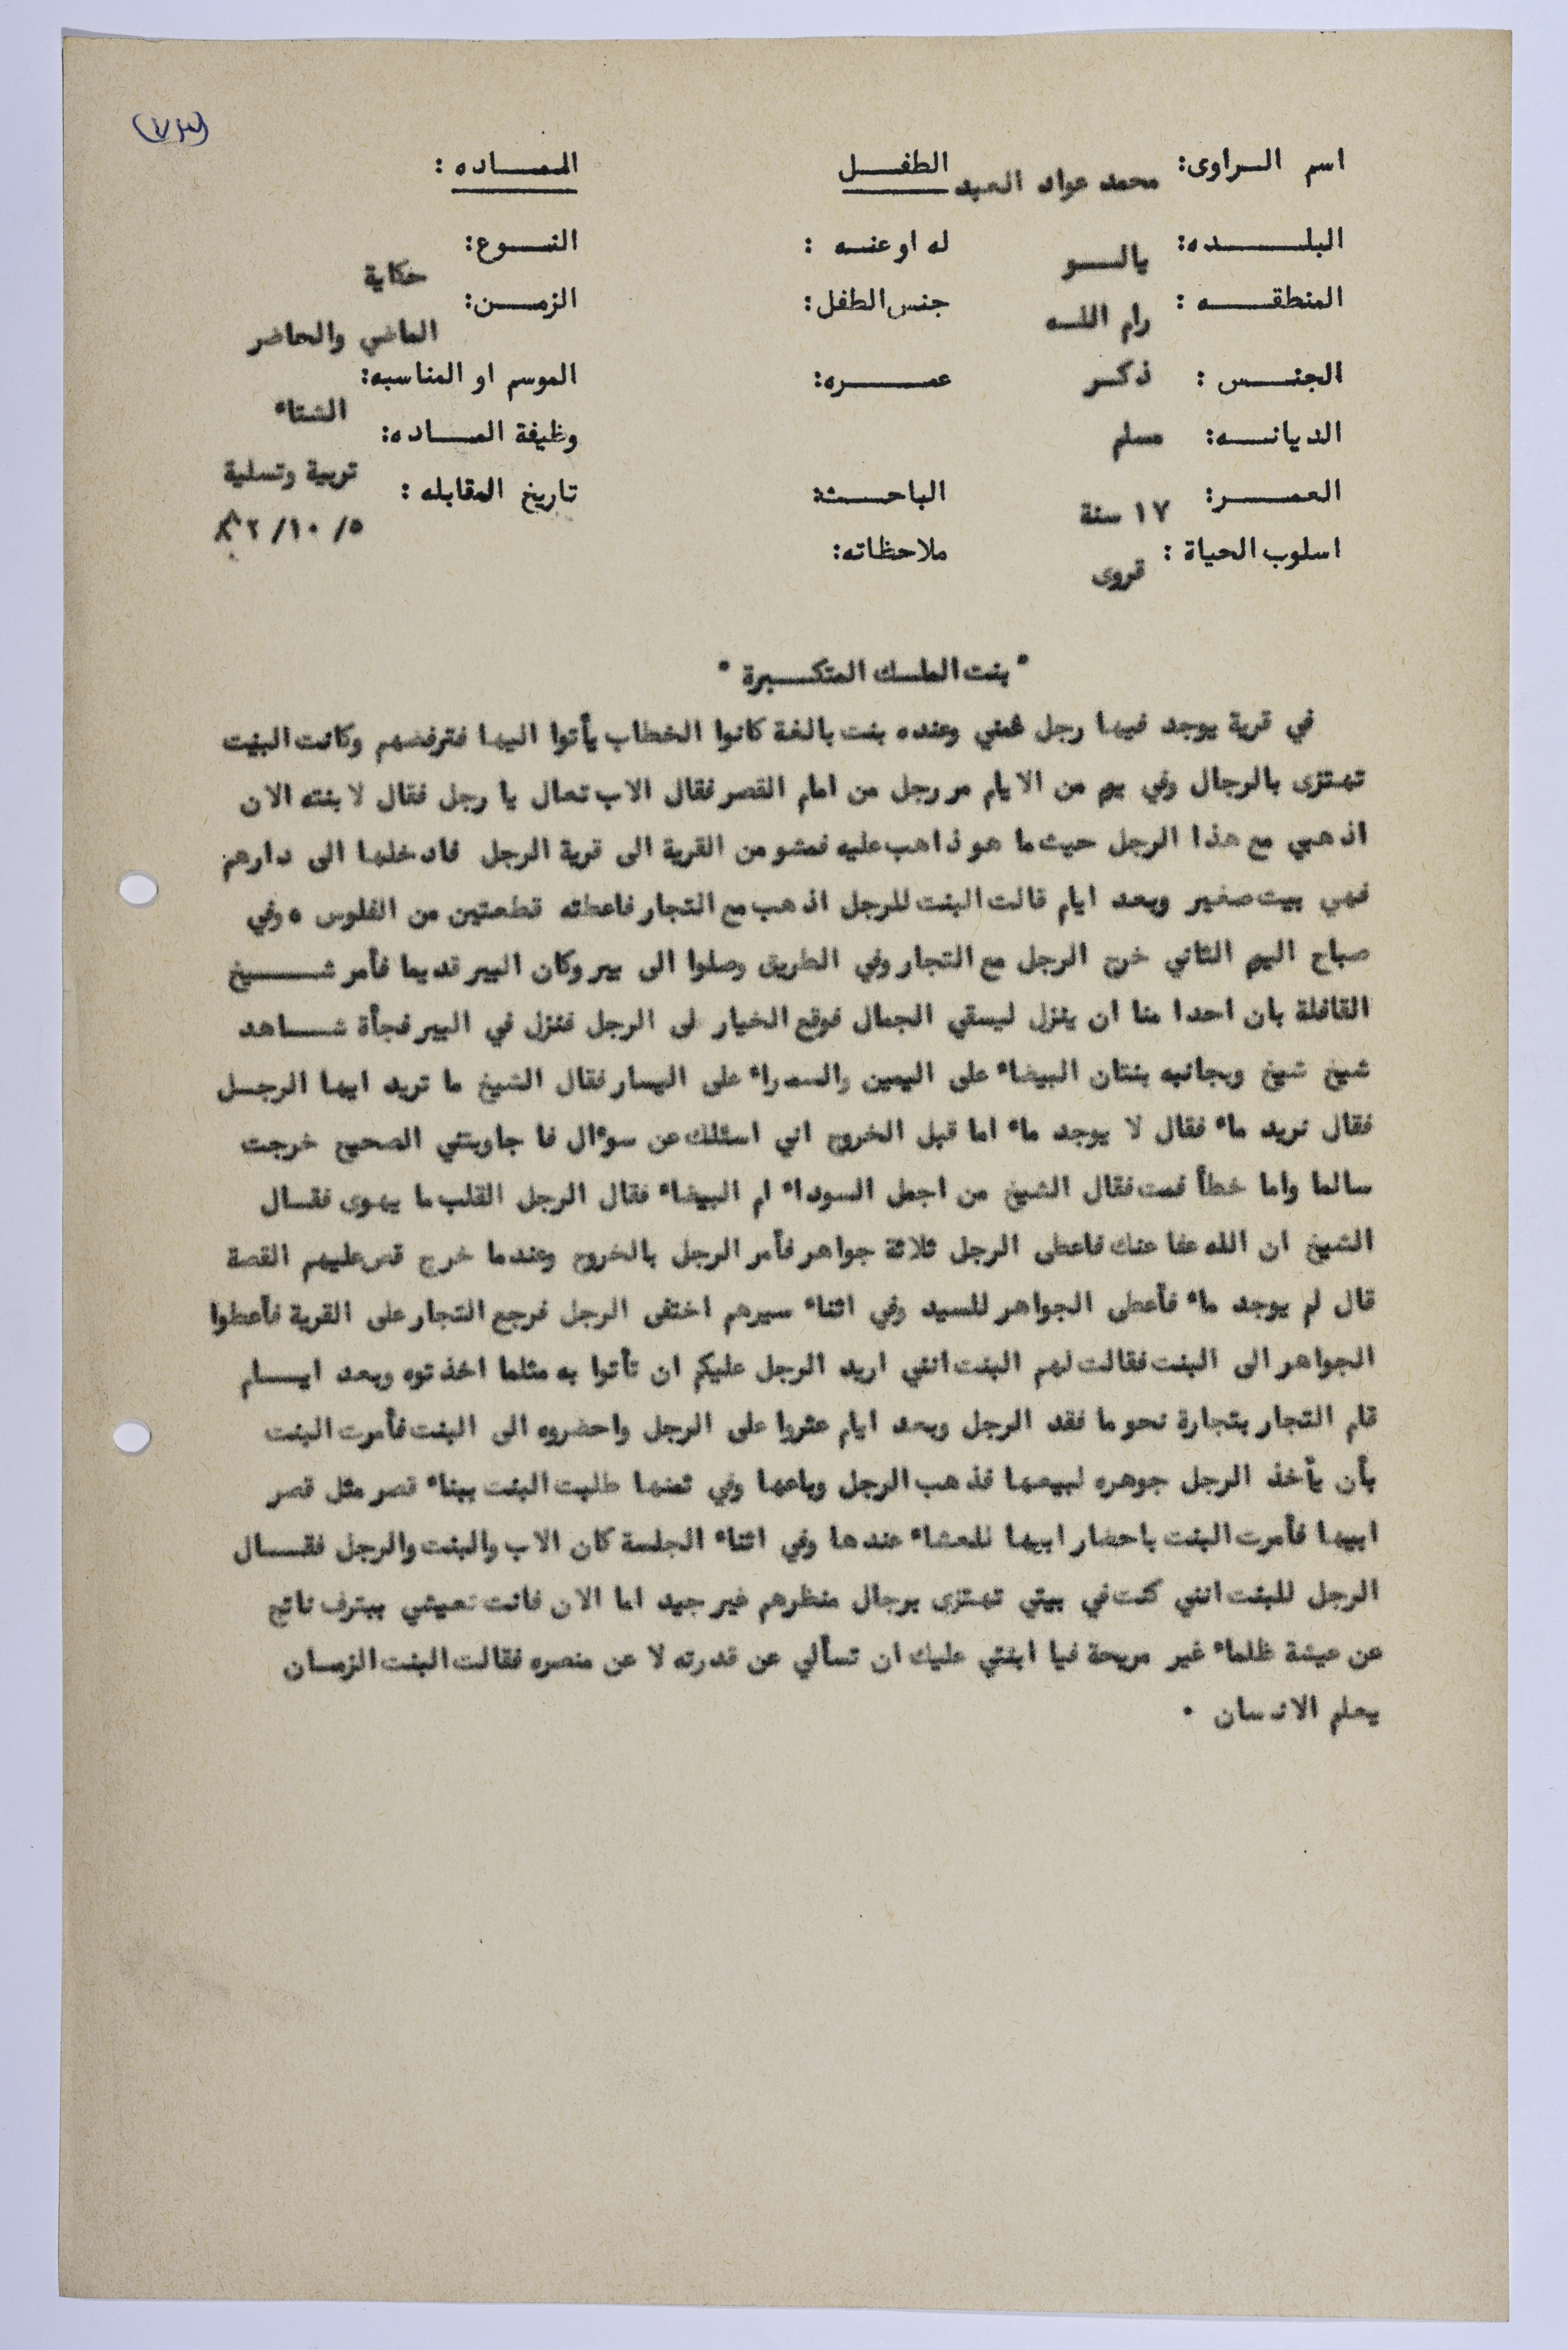 (٧٣)
اسم الراوى: محمد عواد العبد الطفل الماده :
البلده: يالو له او عنه : النوع: حكاية
المنطقه : رام الله جنس الطفل: الزمن: الماضي والحاضر
الجنس : ذكر عمره: الموسم او المناسبه: الشتاء
الديانه: مسلم وظيفة الماده: تربية وتسلية
العمر: ١٧ سنة الباحثة تاريخ المقابله : ٥/ ١٠/ ٨٢
اسلوب الحياة : قروى ملاحظاته:
" بنت الملك المتكبرة "
في قرية يوجد فيها رجل غني وعنده بنت بالغة كانوا الخطاب يأتوا اليها فترفضهم وكانت البنت
تهتزى بالرجال وفي يوم من الايام مر رجل من امام القصر فقال الاب تعال يا رجل فقال لابنته الان
اذهبي مع هذا الرجل حيث ما هو ذاهب عليه فمشو من القرية الى قرية الرجل فادخلها الى دارهم
فهي بيت صغير وبعد ايام قالت البنت للرجل اذهب مع التجار فاعطته قطعتين من الفلوس ٥ وفي
صباح اليوم الثاني خرج الرجل مع التجار وفي الطريق وصلوا الى بير وكان البير قديما فأمر شيخ
القافلة بان احدا منا ان ينزل ليسقي الجمال فوقع الخيار لى الرجل فنزل في البير فجأة شاهد
شيخ شيخ وبجانبه بنتان البيضاء على اليمين والسمراء على اليسار فقال الشيخ ما تريد ايها الرجل
فقال نريد ماء فقال لا يوجد ماء اما قبل الخروج اني اسئلك عن سوءال فا جاوبتني الصحيح خرجت
سالما واما خطأ فمت فقال الشيخ من اجمل السوداء ام البيضاء فقال الرجل القلب ما يهوى فقال
الشيخ ان الله عفا عنك فاعطى الرجل ثلاثة جواهر فأمر الرجل بالخروج وعندما خرج قص عليهم القصة
قال لم يوجد ماء فأعطى الجواهر للسيد وفي اثناء سيرهم اختفى الرجل فرجع التجار على القرية فأعطوا
الجواهر الى البنت فقالت لهم البنت انني اريد الرجل عليكم ان تأتوا به مثلما اخذتوه وبعد ايام
قام التجار بتجارة نحو ما فقد الرجل وبعد ايام عثروا على الرجل واحضروه الى البنت فأمرت البنت
بأن يأخذ الرجل جوهره لبيعها فذهب الرجل وباعها وفي ثمنها طلبت البنت ببناء قصر مثل قصر
ابيها فأمرت البنت باحضار ابيها للعشاء عندها وفي اثناء الجلسة كان الاب والبنت والرجل فقال
الرجل للبنت انني كنت في بيتي تهتزى برجال منظرهم غير جيد اما الان فانت تعيشي ببترف ناتج
عن عيشة ظلماء غير مريحة فيا ابنتي عليك ان تسألي عن قدرته لا عن منصره فقالت البنت الزمان
يعلم الانسان .